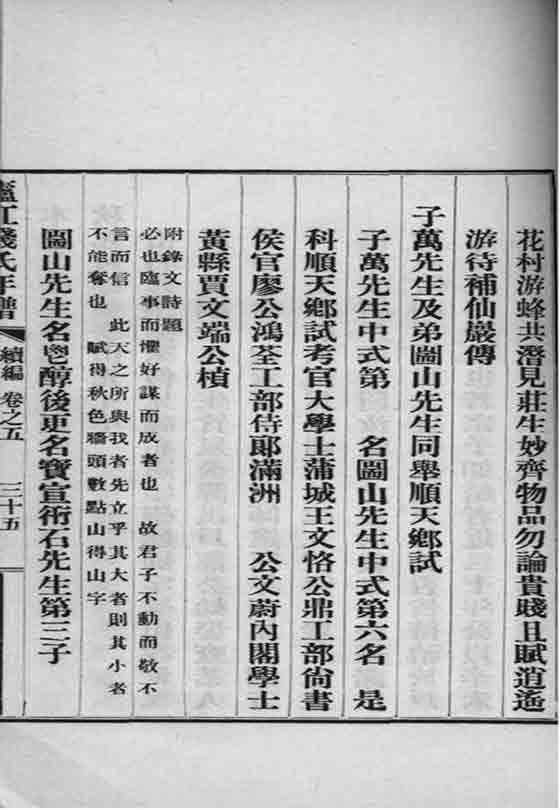 花村游蜂共潛見莊生妙齊物品勿論貴賤且賦逍遙
游待補仙巖傳
子萬先生及弟圌山先生同舉順天鄉試
子萬先生中式第　名圌山先生中式第六名　是
科順天鄉試考官大學士蒲城王文恪公鼎工部尙書
侯官廖公鴻荃工部侍郞滿洲　公文蔚內閣學士
黃縣賈文端公楨
附錄文詩題
必也臨事而懼好謀而成者也　故君子不動而敬不
言而信　此天之所與我者先立乎其大者則其小者
不能奪也　賦得秋色牆頭數點山得山字
圌山先生名鬯醇後更名寶宣術石先生第三子
廬江錢氏年譜　續編　卷之五　三十五